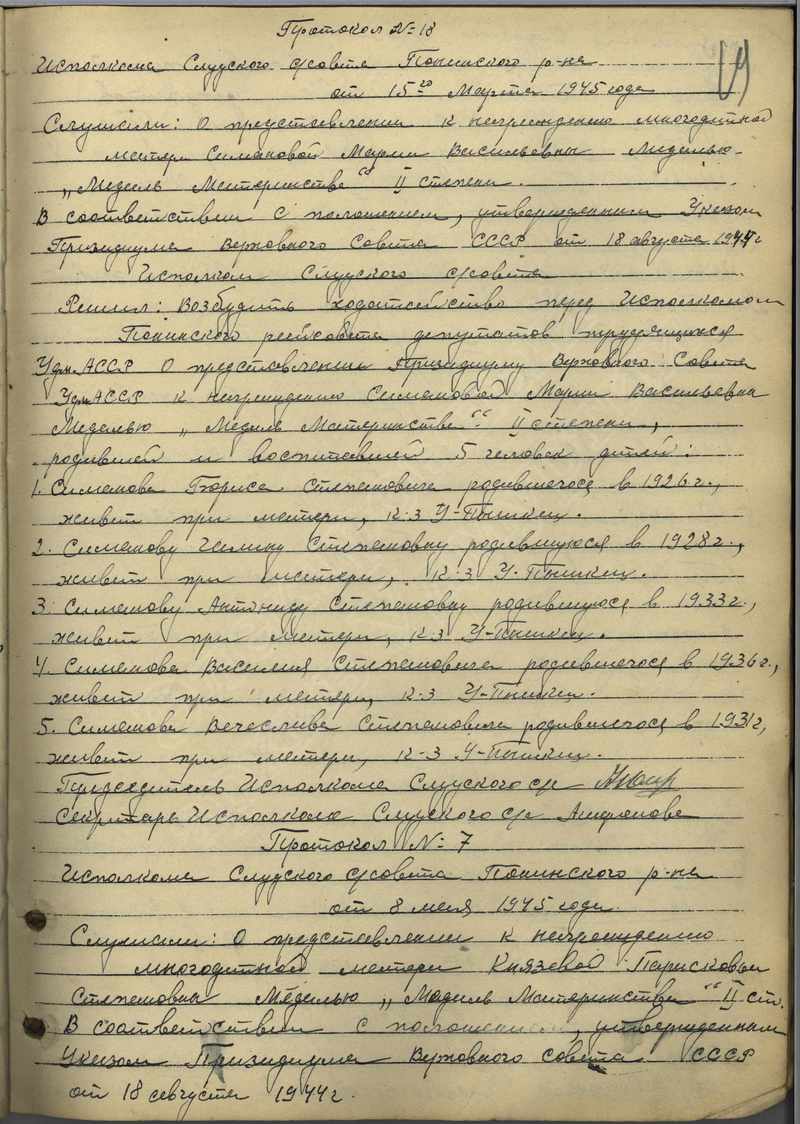 Протокол №18
Исполкома Слудского с/совета Понинского р-на
от 15го Марта 1945 года
Слушали: О представлении к награждению многодитной
матери Симаковой Марии Васильевны Медалью
„Медаль Материнства“ II степени.
В соответствии с положением, утвержденным Указом
Призидиума Верховного Совета СССР от 18 августа 1944 г
Исполком Слудского с/совета
Решил: Возбудить ходатайство перед Исполкомом
Понинского райсовета депутатов трудящихся
Удм.АССР О представлении Призидиуму Верховного Совета
Удм.АССР к награждению Симаковой Марии Васильевны
Медалью „Медаль Материнства“ II степени,
родившей и воспитавшей 5 человек детей:
1. Симакова Бориса Степановича родившегося в 1926 г.,
живет при матери, К-з У-Пышкец.
2. Симакову Степановну родившуюся в 1928 г.,
живет при матери, К-з У-Пышкец.
3. Симакову Антониду Степановну родившуюся в 1933 г.,
живет при матери, К-з У-Пышкец.
4. Симакова Василия Степановича родившегося в 1936 г.,
живет при матери, К-з У-Пышкец.
5. Симакова Вечеслава Степановича родившегося в 1931 г,
живет при матери, К-з У-Пышкец.
Председатель Исполкома Слудского с/с
Секретарь Исполкома Слудского с/с
Протокол № 7
Исполкома Слудского с/совета Понинского р-на
от 8 мая 1945 года.
Слушали: О представлении к награждению
многодитной матери Князевой Парасковьи
Степановны Медалью „Медаль Материнства“ II ст.
В соответствии с положением, утвержденным
Указом Призидиума Верховного Совета СССР
от 18 августа 1944 г.